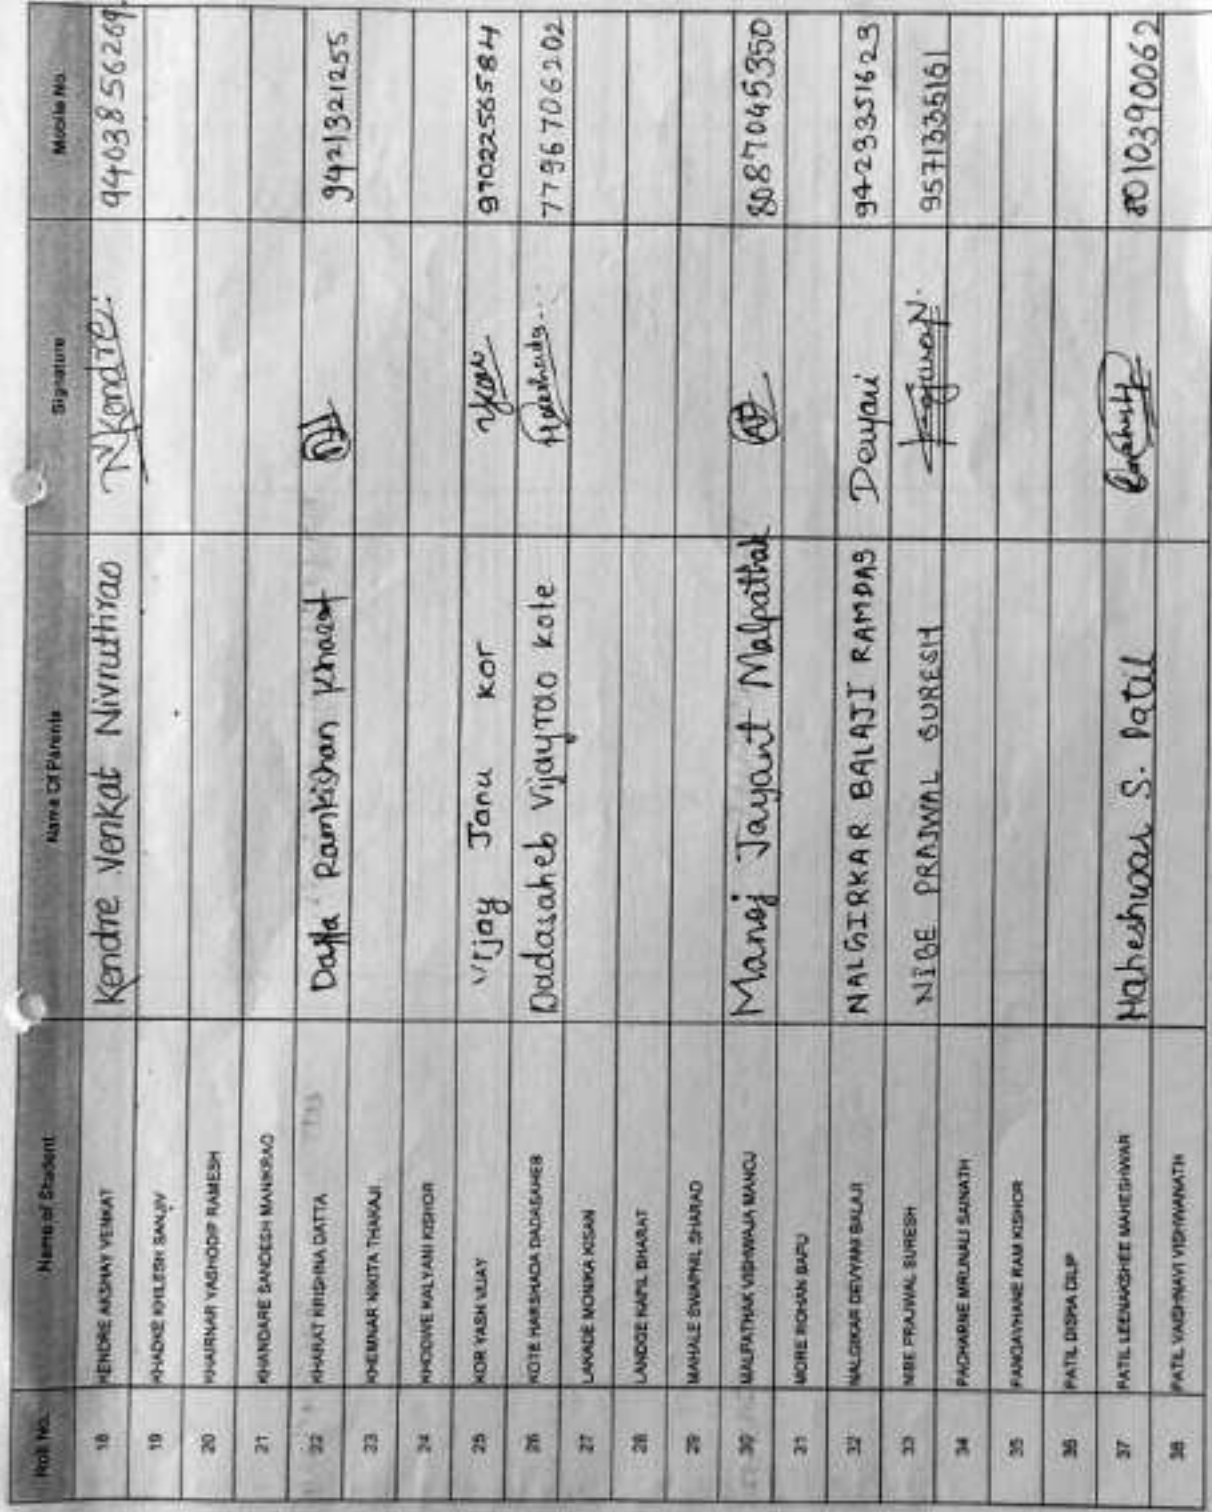 Roll No. Name of Student Name Of Parents Signature Mobile No.
18 KENDRE AKSHAY VENKAT Kendre Venkat Nivruthirao NKendre. 9403856269
19 KHADKE KHILESH SANJIV
20 KHAIRNAR YASHODIP RAMESH
21 KHANDARE SANDESH MANIKRAO
22 KHARAT KRISHNA DATTA Datta Ramkishan Kharat 9421321255
23 KHEMNAR NIKITA THAKAJI
24 KHODWE KALYANI KISHOR
25 KOR YASH VIJAY Vijay Janu Kor 9702256584
26 KOTE HARSHADA DADASAHEB Dadasaheb Vijayrao Kote 7796706202
27 LAKADE MONIKA KISAN
28 LANDGE KAPIL BHARAT
29 MAHALE SWAPNIL SHARAD
30 MALPATHAK VISHWAJA MANOJ Manoj Jayant Malpathak 8087045350
31 MORE ROHAN BAPU
32 NALGIRKAR DEVYANI BALAJI NALGIRKAR BALAJI RAMDAS Devyani 9423351623
33 NIBE PRAJWAL SURESH NIBE PRAJWAL SURESH 9571335161
34 PACHARNE MRUNALI SAINATH
35 PANGAVHANE RAM KISHOR
36 PATIL DISHA DILIP
37 PATIL LEENAKSHEE MAHESHWAR Maheshwar S. Patil 8010390062
38 PATIL VAISHNAVI VISHWANATH